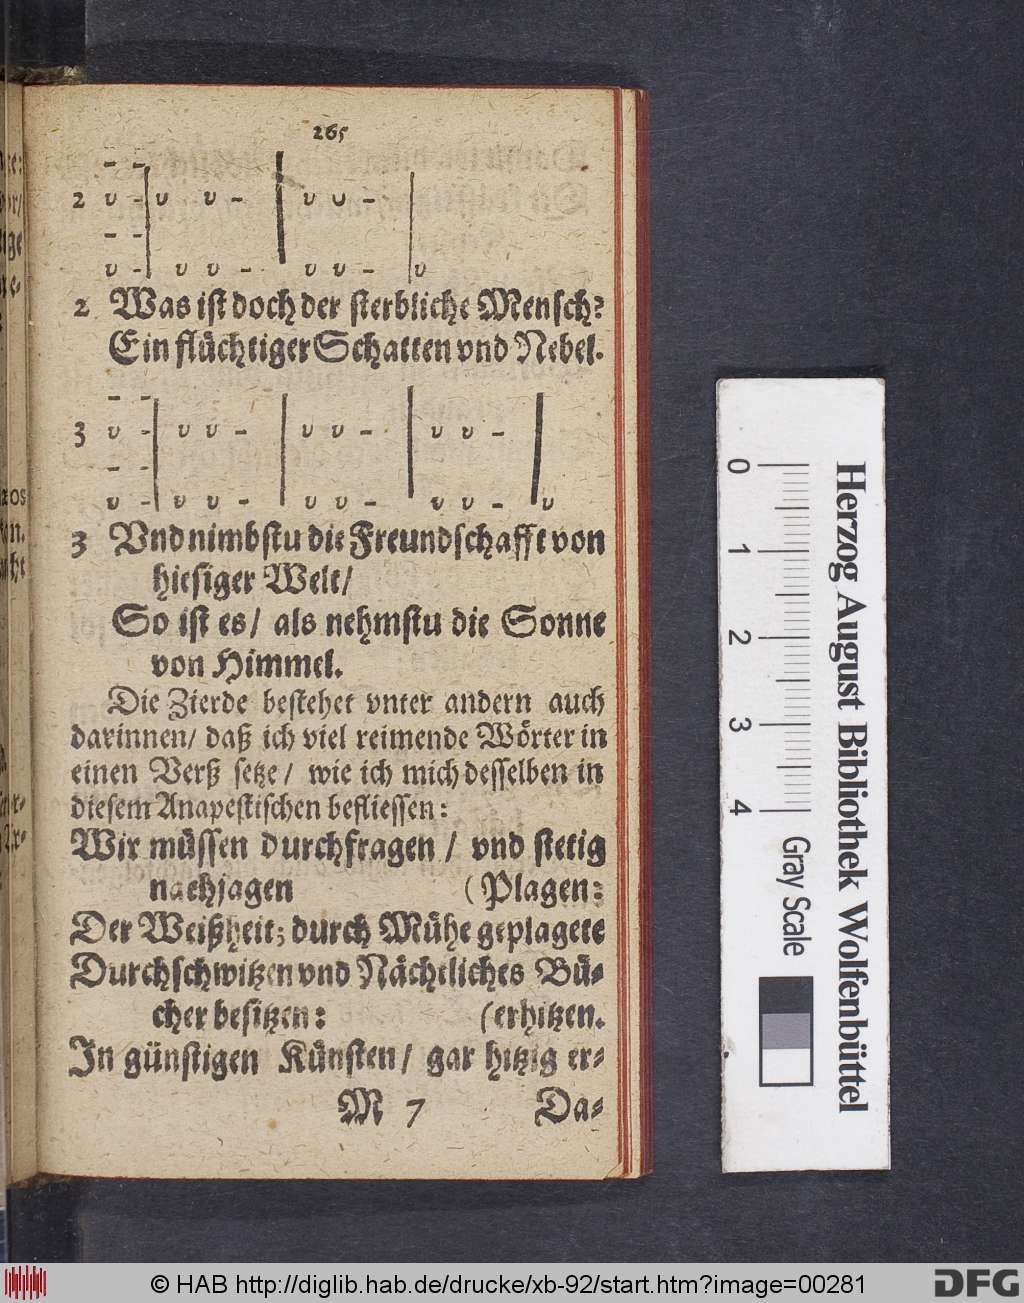 265
- -
2 υ - | υ υ - | υ υ - |
- -
υ - | υ υ - | υ υ - | υ
2 Was ist doch der sterbliche Mensch?
Ein flüchtiger Schatten vnd Nebel.
- -
3 υ - | υ υ - | υ υ - | υ υ - |
- -
υ - | υ υ - | υ υ - | υ υ - | υ
3 Vnd nimbstu die Freundschafft von
hiesiger Welt/
So ist es/ als nehmstu die Sonne
von Himmel.
Die Zierde bestehet vnter andern auch
darinnen/ daß ich viel reimende Wörter in
einen Verß setze/ wie ich mich desselben in
diesem Anapestischen befliessen:
Wir müssen durchfragen / vnd stetig
nachjagen (Plagen:
Der Weißheit; durch Mühe geplagete
Durchschwitzen vnd Nächtliches Bü-
cher besitzen: (erhitzen.
In günstigen Künsten/ gar hitzig er-
M 7 Da-
0 1 2 3 4
Herzog August Bibliothek Wolfenbüttel
Gray Scale
© HAB http://diglib.hab.de/drucke/xb-92/start.htm?image=00281
DFG